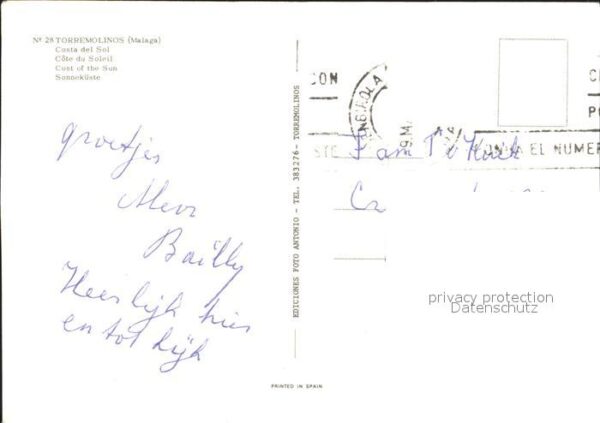 Nº 28 TORREMOLINOS (Malaga)
Costa del Sol
Côte du Soleil
Cost of the Sun
Sonneküste
groetjes
Bailly
Heerlijk hier
en tot kijk
EDICIONES FOTO ANTONIO - TEL. 383276 - TORREMOLINOS
CON
EL NUMER
Fam
privacy protection
Datenschutz
PRINTED IN SPAIN